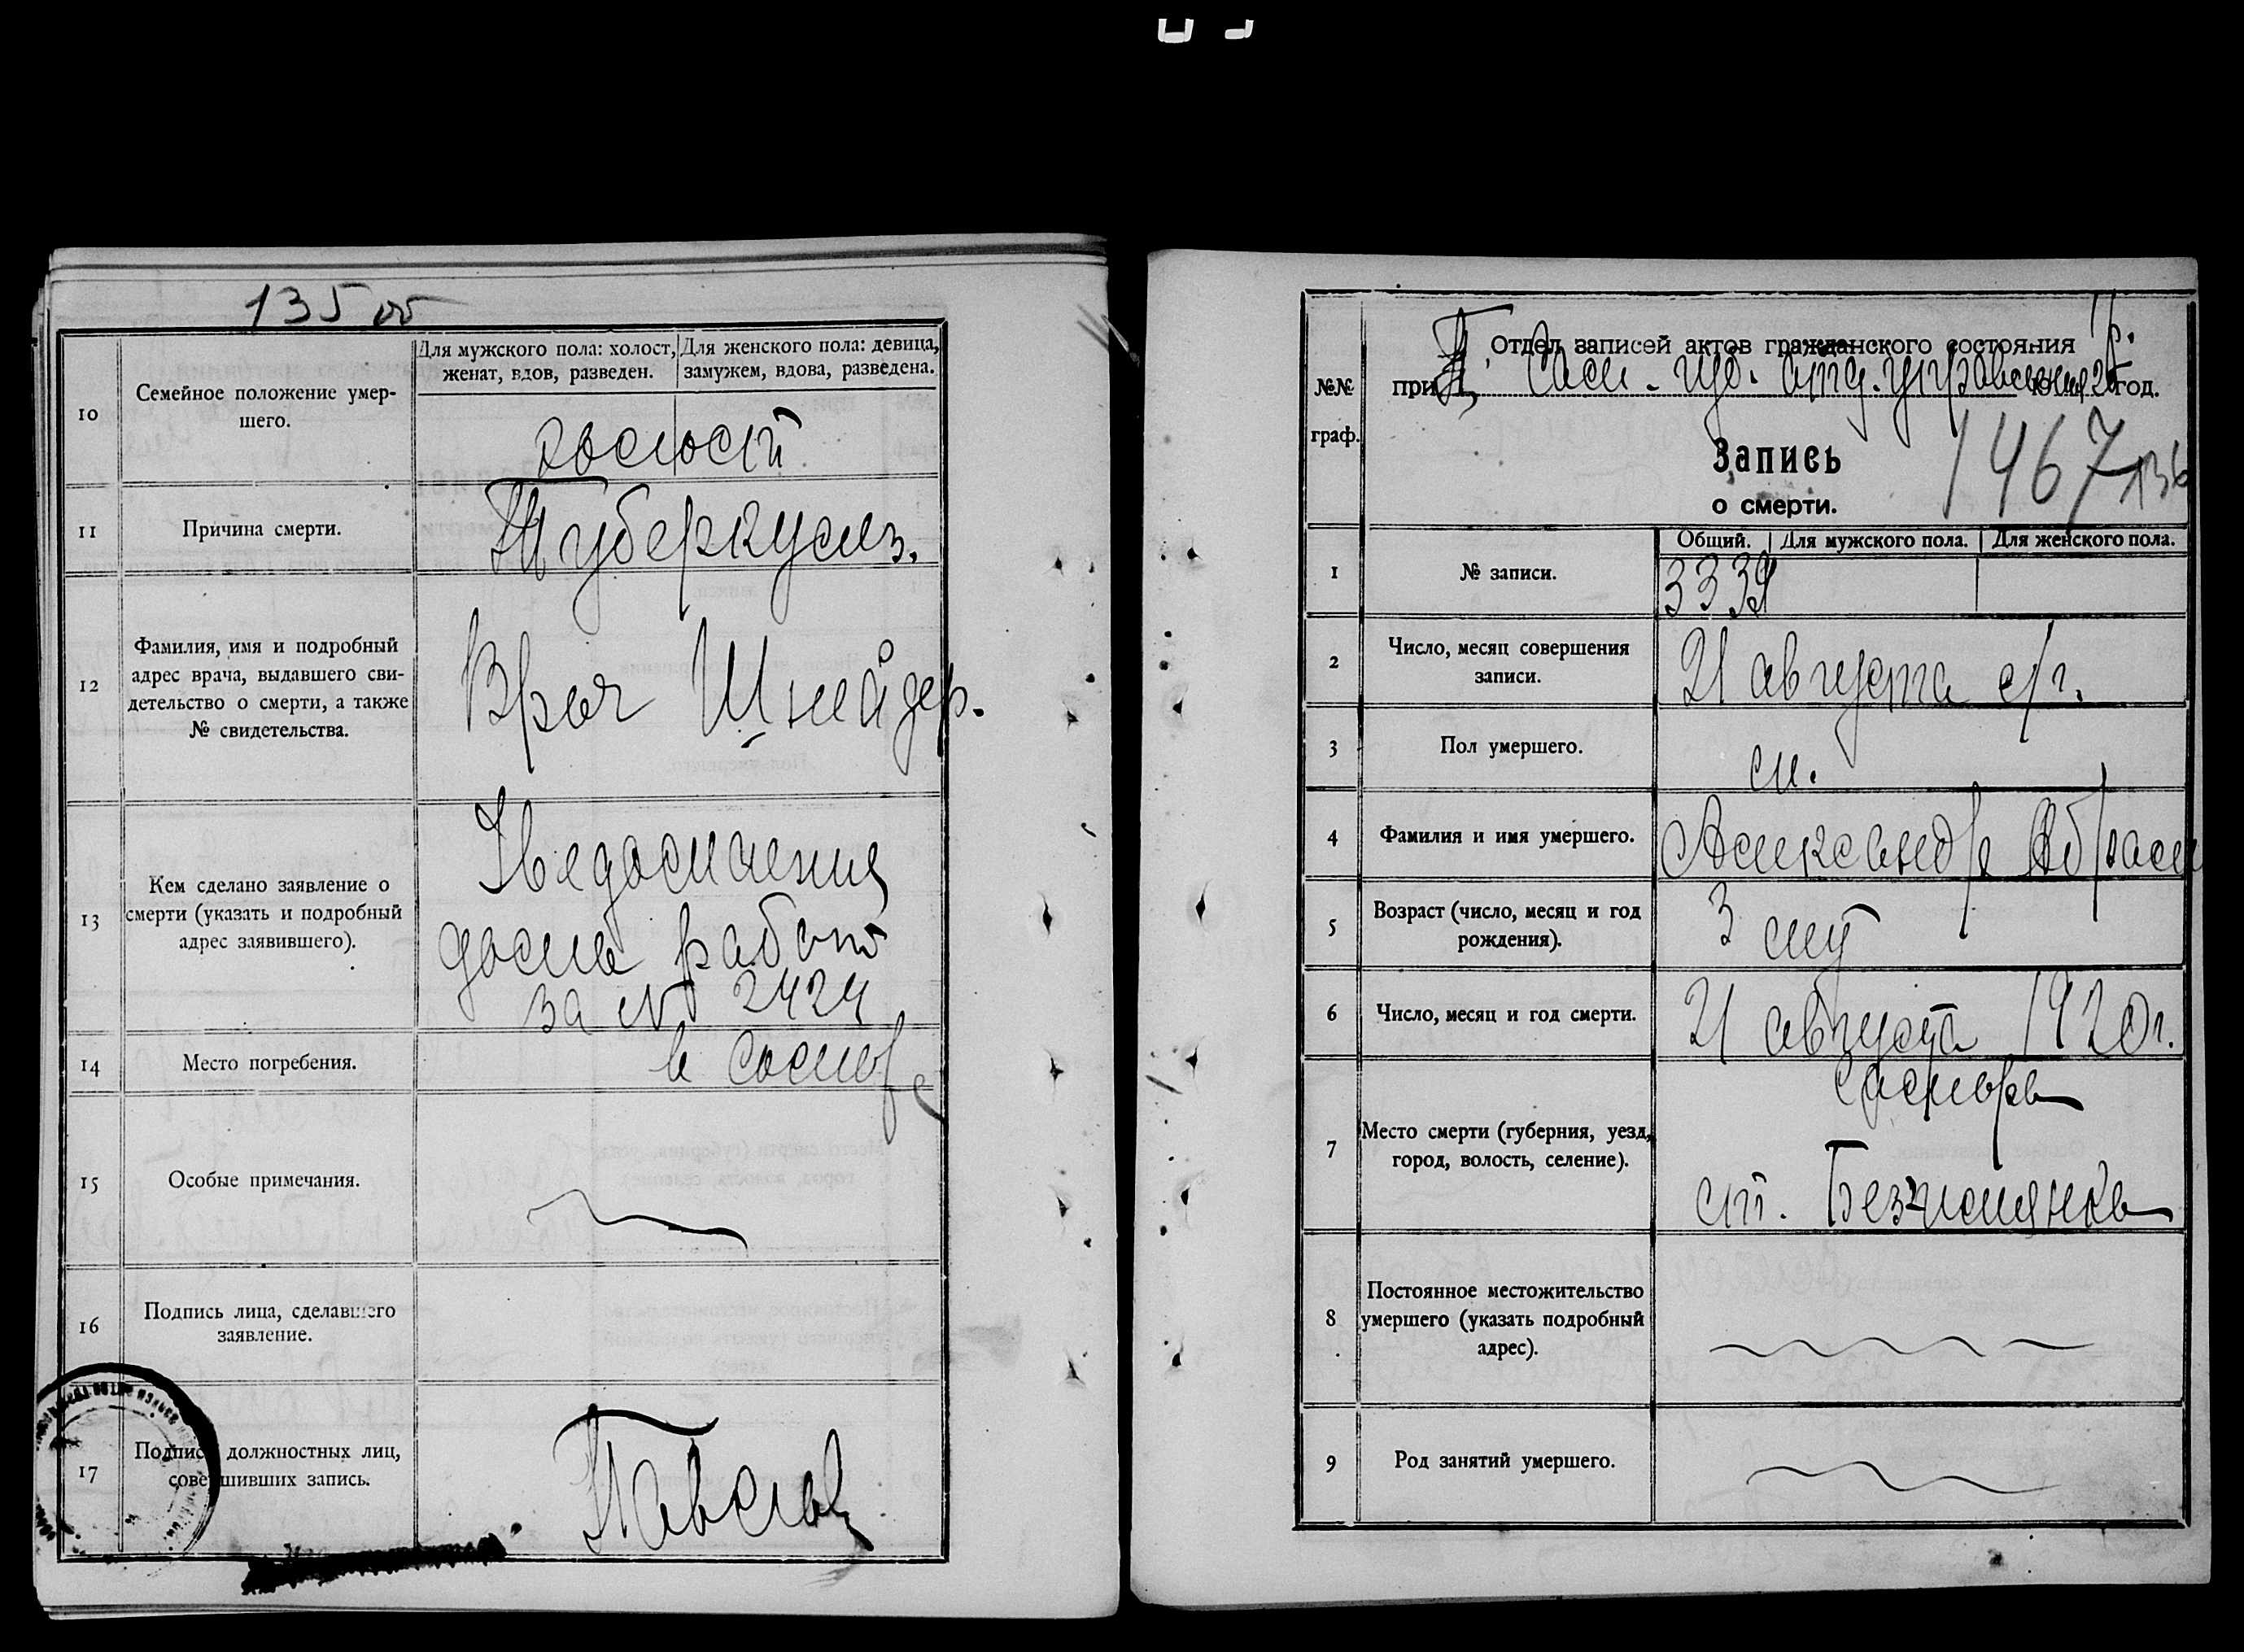 135 об
10
Семейное положение умер-
шего.
Для мужского пола: холост,
женат, вдов, разведен.
Для женского пола: девица,
замужем, вдова, разведена.
холост
11
Причина смерти.
Туберкулез.
12
Фамилия, имя и подробный
адрес врача, выдавшего сви-
детельство о смерти, а также
№ свидетельства.
Врач Шнейдер.
13
Кем сделано заявление о
смерти (указать и подробный
адрес заявившего).
дома работ
за № 2424
14
Место погребения.
в Самаре
15
Особые примечания.
16
Подпись лица, сделавшего
заявление.
17
Подпись должностных лиц,
совершивших запись.
Павлов
№№
граф.
Отдел записей актов гражданского состояния
при Сам. губ. отд. управления 20 год.
Запись
о смерти.
1467
136
Общий.
Для мужского пола.
Для женского пола.
1
№ записи.
3339
2
Число, месяц совершения
записи.
21 августа с/г.
3
Пол умершего.
м.
4
Фамилия и имя умершего.
Александр Абрам
5
Возраст (число, месяц и год
рождения).
3 лет
6
Число, месяц и год смерти.
21 августа 1920 г.
7
Место смерти (губерния, уезд,
город, волость, селение).
Самара
ст. Безымянка
8
Постоянное местожительство
умершего (указать подробный
адрес).
9
Род занятий умершего.